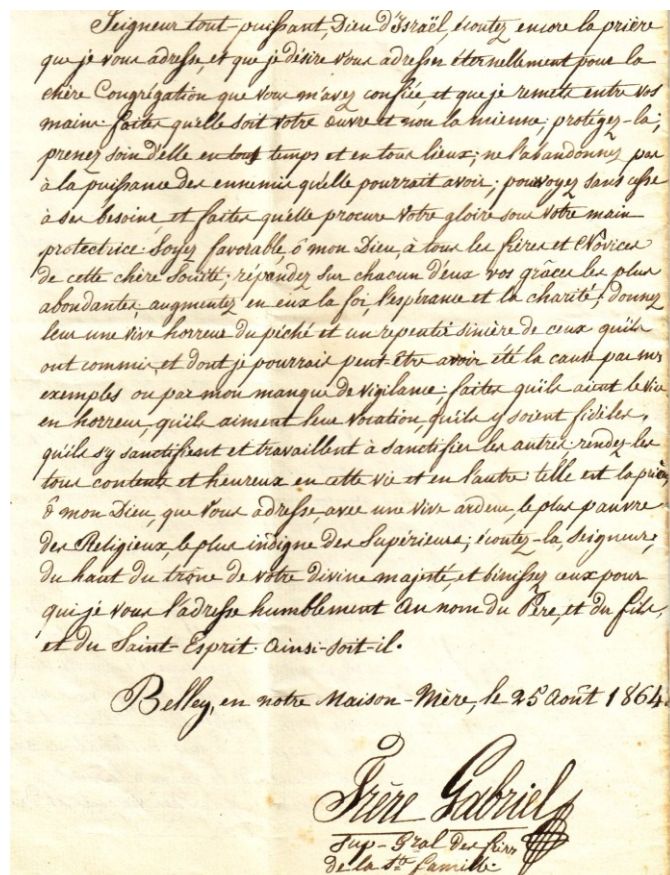 Seigneur tout-puissant, Dieu d'Israël, écoutez encore la prière
que je vous adresse, et que je désire vous adresser éternellement pour la
chère Congrégation que vous m'avez confiée, et que je remets entre vos
mains: faites qu'elle soit votre œuvre et non la mienne, protégez-la;
prenez soin d'elle en tous temps et en tous lieux; ne l'abandonnez pas
à la puissance des ennemis qu'elle pourrait avoir; pourvoyez sans cesse
à ses besoins, et faites qu'elle procure votre gloire sous votre main
protectrice. Soyez favorable, ô mon Dieu, à tous les frères et Novices
de cette chère Société; répandez sur chacun d'eux vos grâces les plus
abondantes; augmentez en eux la foi, l'espérance et la charité; donnez
leur une vive horreur du péché et un repentir sincère de ceux qu'ils
ont commis, et dont je pourrais peut-être avoir été la cause par mes
exemples ou par mon manque de vigilance; faites qu'ils aient le vice
en horreur, qu'ils aiment leur vocation, qu'ils y soient fidèles,
qu'ils s'y sanctifient et travaillent à sanctifier les autres: rendez-les
tous contents et heureux en cette vie et en l'autre: telle est la prière
ô mon Dieu, que vous adresse, avec une vive ardeur, le plus pauvre
des Religieux, le plus indigne des Supérieurs; écoutez-la, Seigneur,
du haut du trône de votre divine majesté, et bénissez ceux pour
qui je vous l'adresse humblement au nom du Père, et du fils,
et du Saint-Esprit. Ainsi-soit-il.
Belley, en notre Maison-Mère, le 25 Août 1864.
Frère Gabriel
Sup-Gral des frères
de la Ste famille.